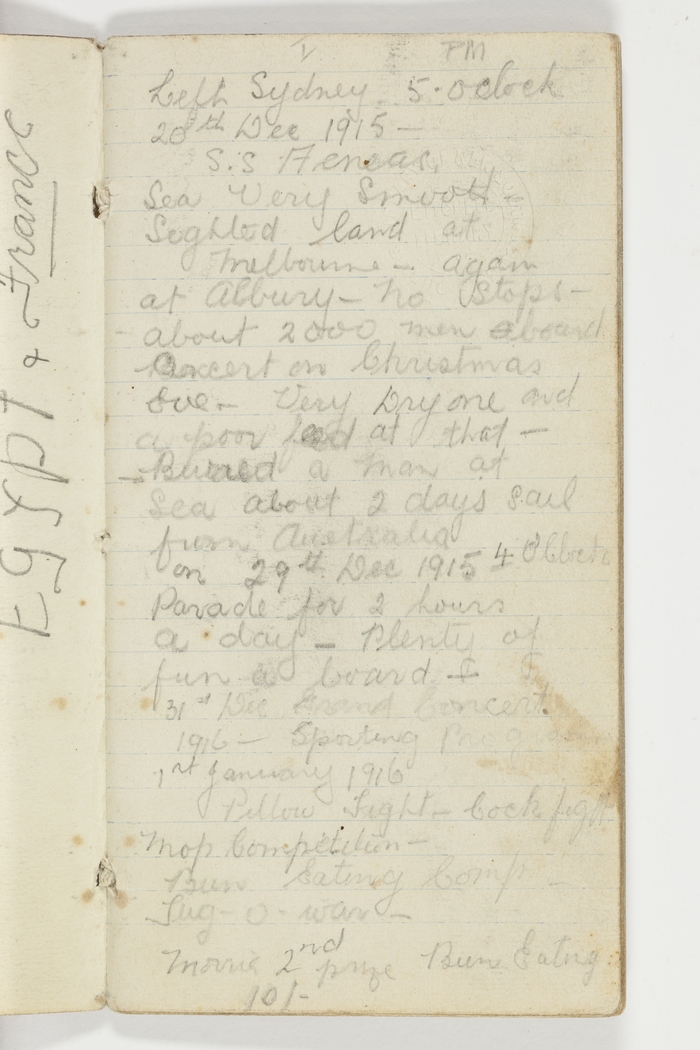 Egypt & France
PM
Left Sydney 5. oclock
20th Dec 1915 —
S.S Aeneas.
Sea Very Smooth –
Sighted land at
Melbourne – again
at Albury – no Stops –
about 2000 men aboard
Concert on Christmas
Eve – Very Dry one and
a poor feed at that –
– Buried a man at
Sea about 2 days sail
from Australia
on 29th Dec 1915 4 Oclock
Parade for 2 hours
a day – Plenty of
fun a board
31st Dec Grand Concert.
1916 – Sporting Program
1st January 1916
Pillow Fight – Cock fight
Mop Competition –
Bun Eating Comp –
Tug - o - war –
Morris 2nd prize Bun Eating
10/-